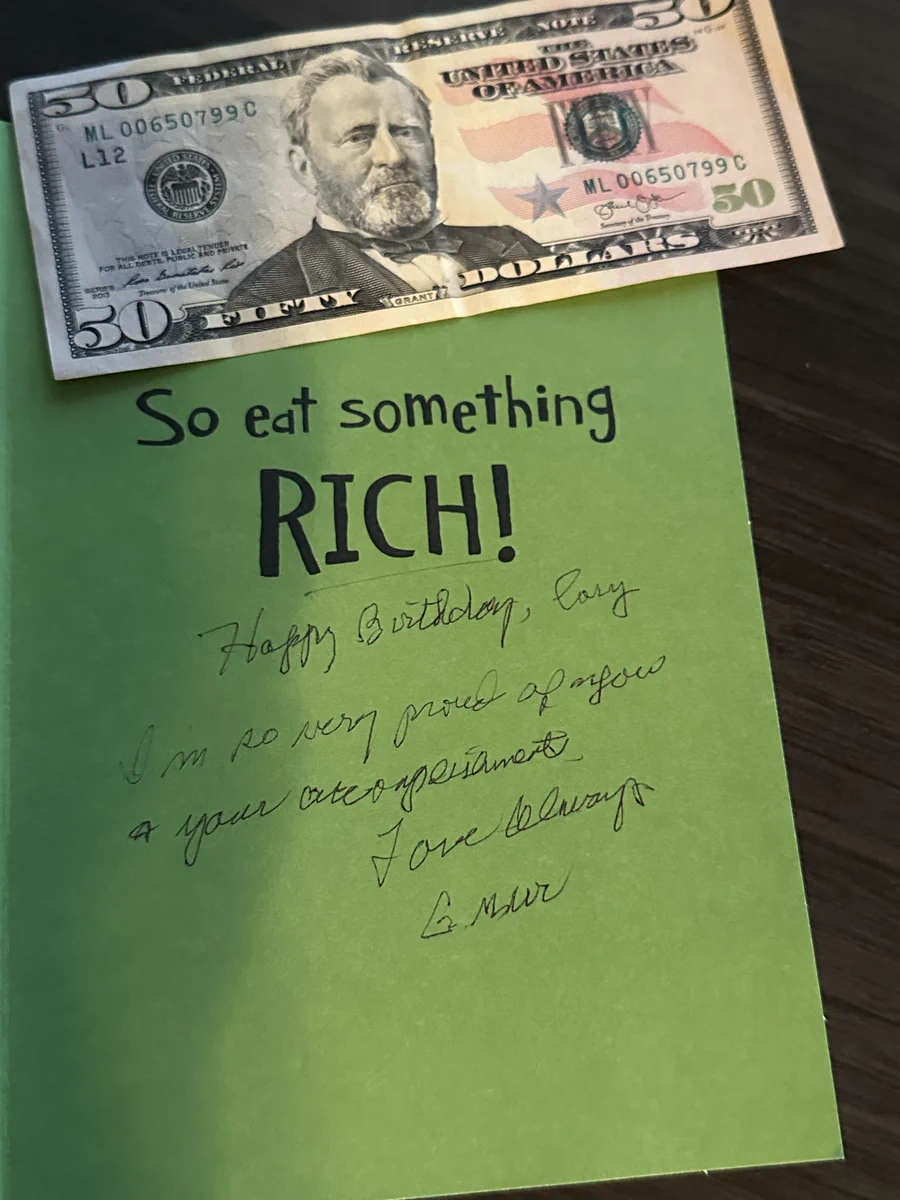 50 FEDERAL RESERVE NOTE 50
THE
UNITED STATES
OF AMERICA
ML 00650799 C
L12
ML 00650799 C
THIS NOTE IS LEGAL TENDER
FOR ALL DEBTS, PUBLIC AND PRIVATE
Secretary of the Treasury
50
SERIES
2013
Treasurer of the United States
50 FIFTY GRANT DOLLARS
So eat something
RICH!
Happy Birthday, Cory
I'm so very proud of you
& your
Love Always